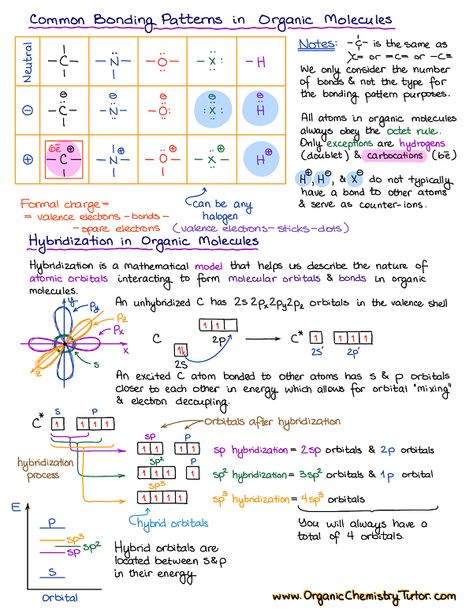 Common Bonding Patterns in Organic Molecules
Neutral
–C– –N– –O– –X: –H
⊖ –C– –N– –O: :X: H
⊕ 6ē –C– –N– –O– –X– H
Notes: –C– is the same as
C= or =C= or –C≡
We only consider the number
of bonds & not the type for
the bonding pattern purposes.
All atoms in organic molecules
always obey the octet rule.
Only exceptions are hydrogens
(doublet) & carbocations (6ē)
H⊕, H⊖, & X⊖ do not typically
have a bond to other atoms
& serve as counter-ions.
can be any
halogen
Formal charge =
= valence electrons - bonds -
- spare electrons (valence electrons - sticks - dots)
Hybridization in Organic Molecules
Hybridization is a mathematical model that helps us describe the nature of
atomic orbitals interacting to form molecular orbitals & bonds in organic
molecules.
An unhybridized C has 2s 2px 2py 2pz orbitals in the valence shell
y
Py
Pz
Px
x
z
s
C 2s 2p → C* 2s' 2p'
An excited C atom bonded to other atoms has s & p orbitals
closer to each other in energy which allows for orbital "mixing"
& electron decoupling.
orbitals after hybridization
C* s p
hybridization
process
sp p
sp hybridization = 2sp orbitals & 2p orbitals
sp² p
sp² hybridization = 3sp² orbitals & 1p orbital
sp³
sp³ hybridization = 4sp³ orbitals
hybrid orbitals
You will always have a
total of 4 orbitals.
E
P
sp³
sp²
sp
S
Orbital
Hybrid orbitals are
located between s&p
in their energy
www.OrganicChemistryTutor.com